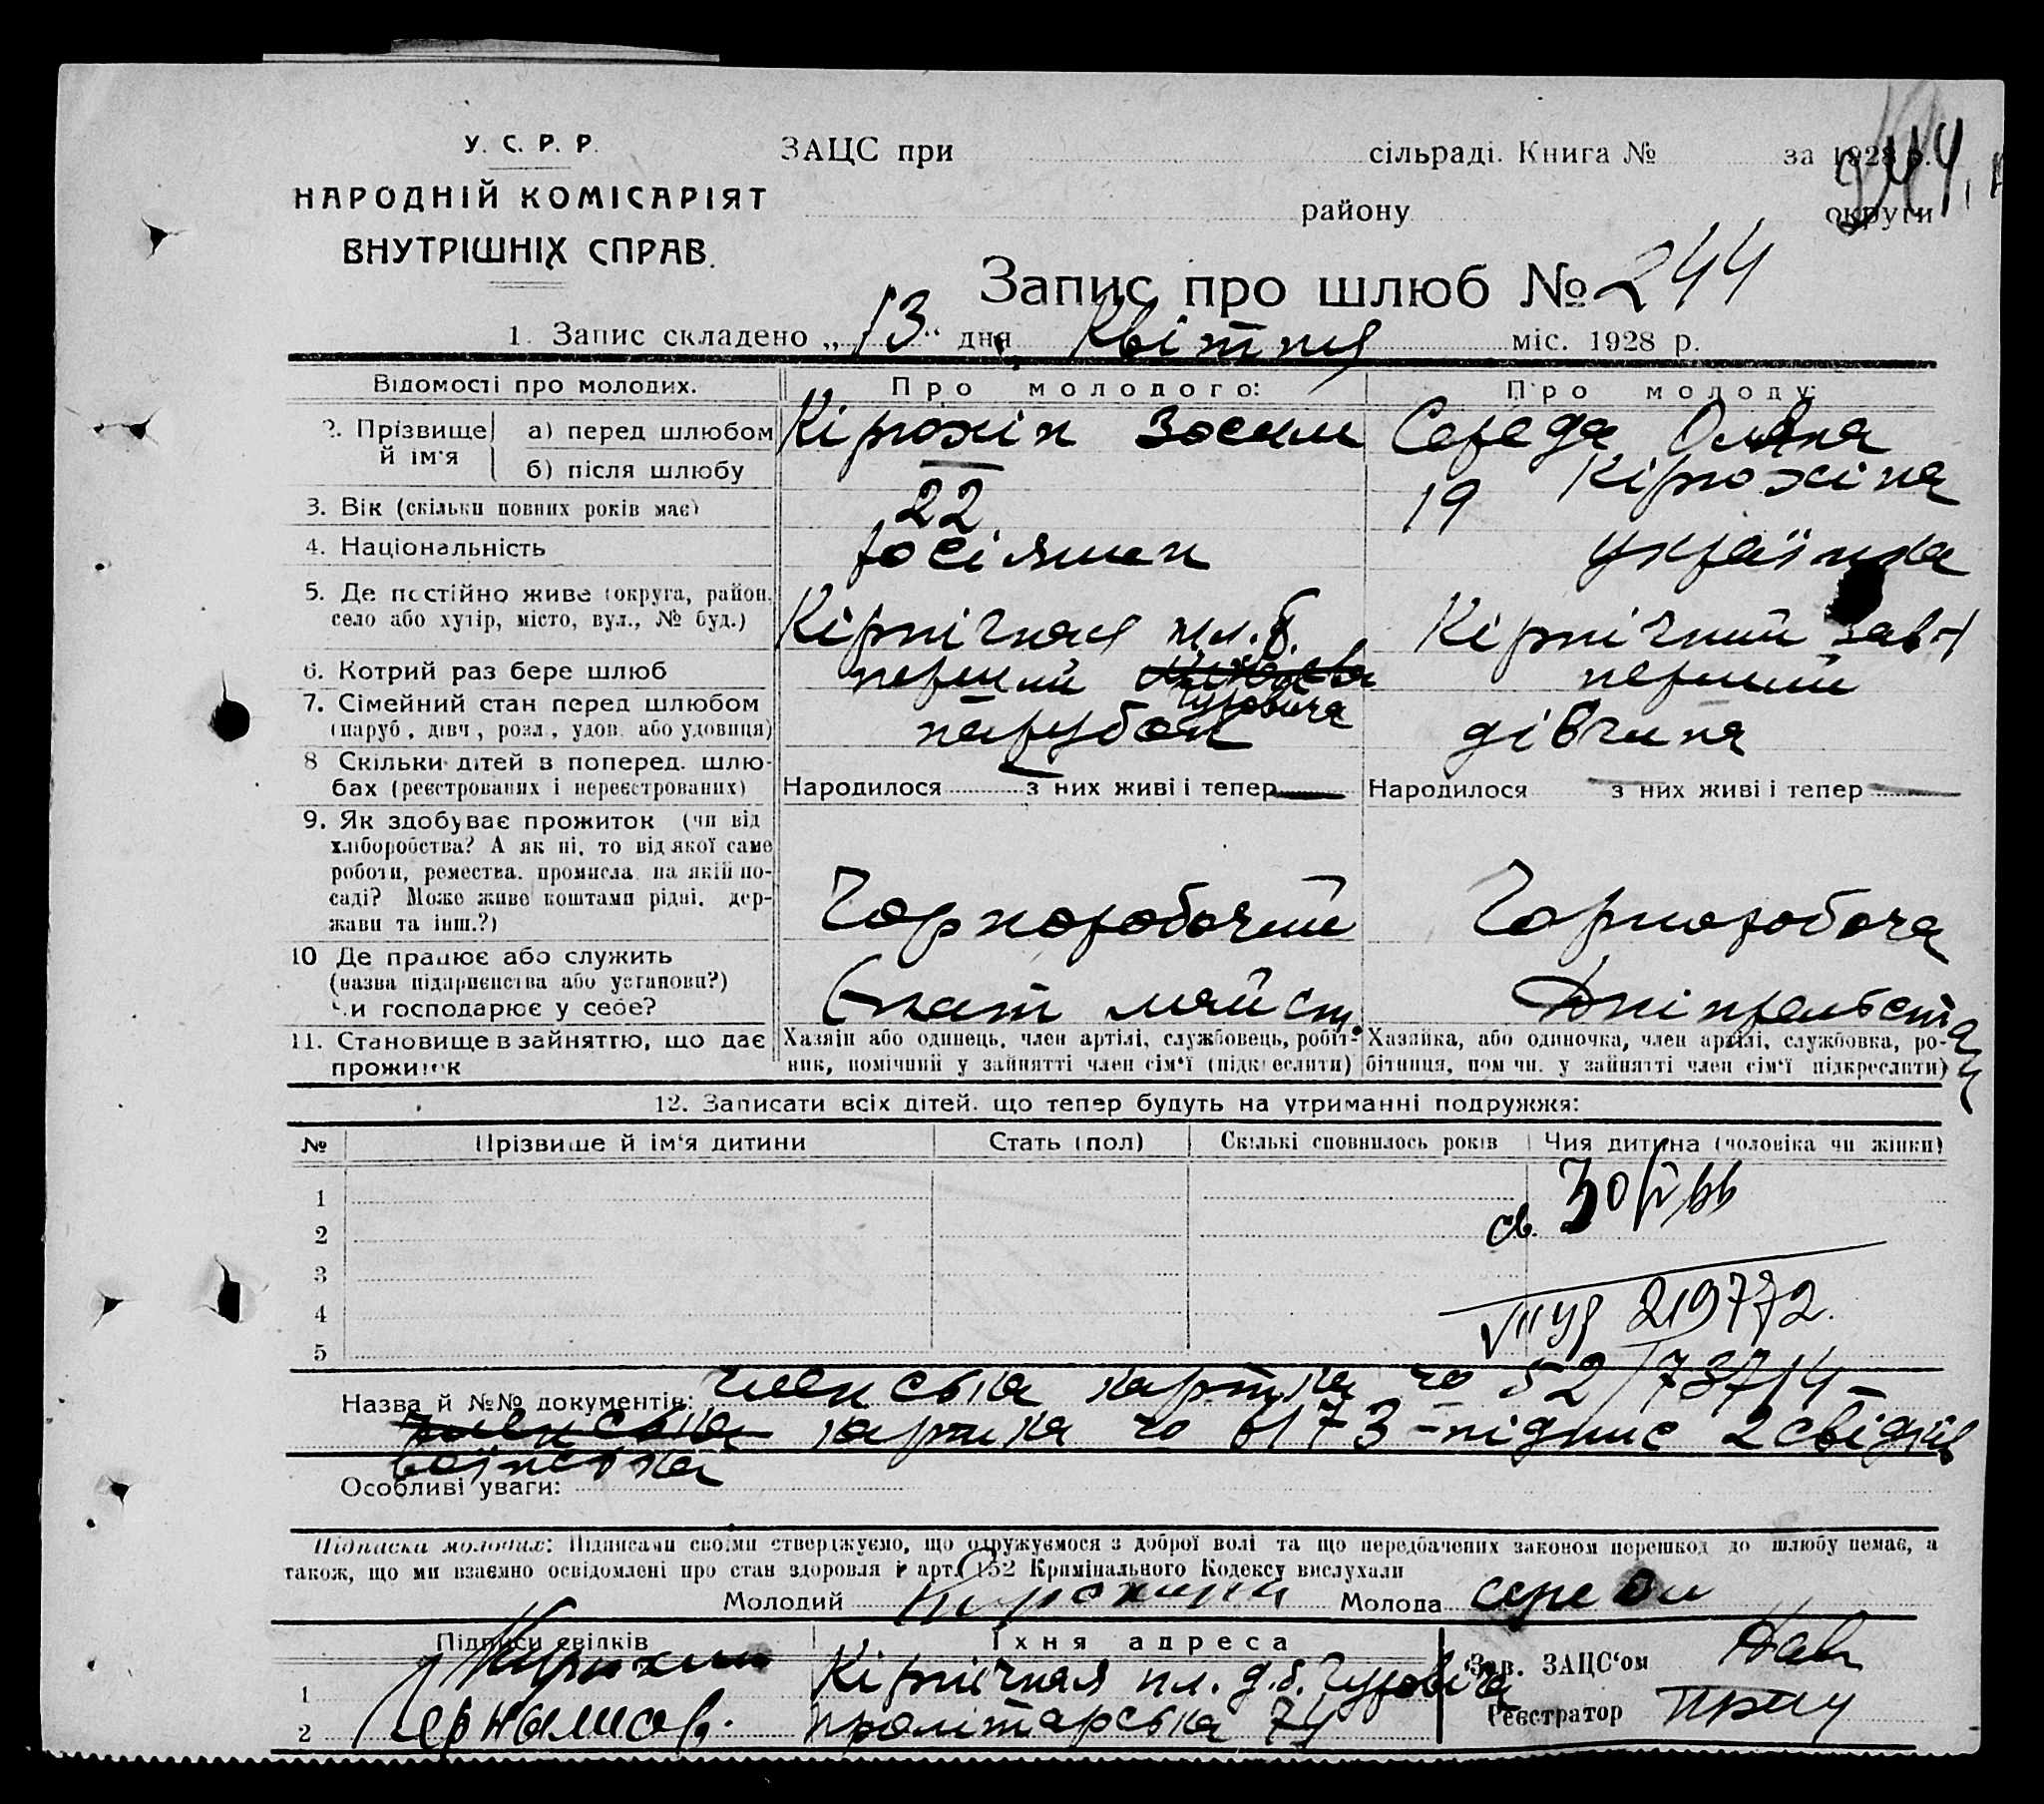 У. С. Р. Р.
НАРОДНІЙ КОМІСАРІЯТ
ВНУТРІШНІХ СПРАВ.
ЗАЦС при сільраді. Книга № за 1928 р.
району округи
244
Запис про шлюб № 244
1. Запис складено „13“ дня Квітня міс. 1928 р.
Відомості про молодих. Про молодого: Про молоду:
2. Прізвище й ім'я а) перед шлюбом Кірюхін Зосим Середа Оляна
б) після шлюбу — Кірюхіна
3. Вік (скільки повних років має) 22 19
4. Національність росіянин українка
5. Де постійно живе (округа, район, село або хутір, місто, вул., № буд.) Кірпічная пл. б. Гуровича Кірпічний зав-д
6. Котрий раз бере шлюб перший перший
7. Сімейний стан перед шлюбом (паруб., дівч., розл., удов. або удовиця) парубок дівчина
8 Скільки дітей в поперед. шлюбах (реєстрованих і нереєстрованих) Народилося — з них живі і тепер — Народилося — з них живі і тепер —
9. Як здобуває прожиток (чи від хліборобства? А як ні, то від якої саме роботи, ремества, промисла, на якій посаді? Може живе коштами рідні, держави та інш.?) Чорноробочий Чорноробоча
10 Де працює або служить (назва підприємства або установи?) Чи господарює у себе? майст
11. Становище в зайняттю, що дає прожиток Хазяїн або одинець, член артілі, службовець, робітник, помічний у зайнятті член сім'ї (підкреслити) Хазяйка, або одиночка, член артілі, службовка, робітниця, помічн. у зайнятті член сім'ї підкреслити)
12. Записати всіх дітей, що тепер будуть на утриманні подружжя:
№ Прізвище й ім'я дитини Стать (пол) Скількі сповнилось років Чия дитина (чоловіка чи жінки)
1
2
3
4
5
св. 30/V/66
219772.
Назва й №№ документів: членська картка чо 52/73714 –
членська картка чо 6173 – підпис 2 свідків
воїнська
Особливі уваги:
Підписка молодих: Підписами своїми стверджуємо, що одружуємося з доброї волі та що передбачених законом перешкод до шлюбу немає, а
також, що ми взаємно освідомлені про стан здоровля і арт. 152 Кримінального Кодексу вислухали
Молодий Молода середа
Підписи свідків Їхня адреса
1 Кірпічная пл. д.б. Гуровича
2 пролітарська 74
Зав. ЗАЦС'ом
Реєстратор